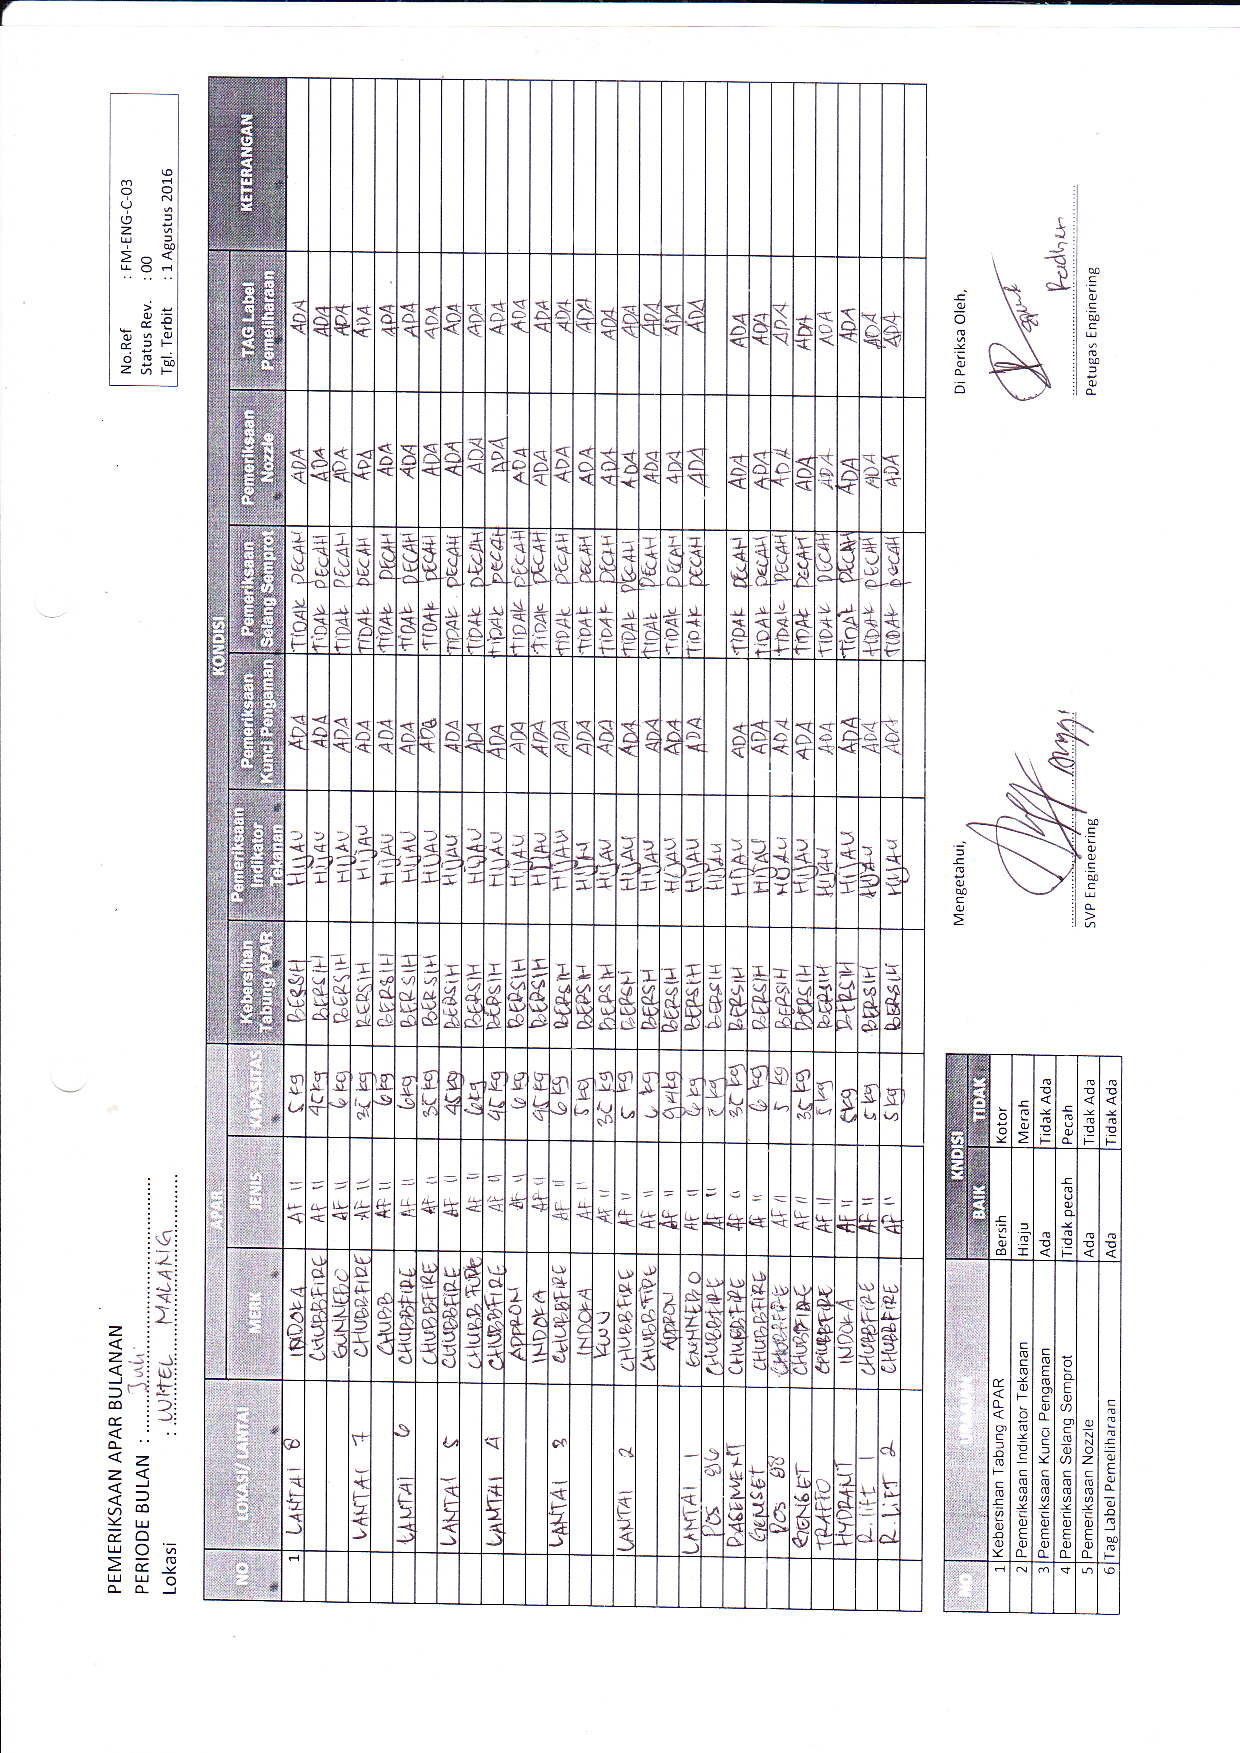 PEMERIKSAAN APAR BULANAN
PERIODE BULAN : Juli
Lokasi : WITEL MALANG
No.Ref : FM-ENG-C-03
Status Rev. : 00
Tgl. Terbit : 1 Agustus 2016
NO LOKASI/ LANTAI APAR KONDISI KETERANGAN
MERK JENIS KAPASITAS Kebersihan Tabung APAR Pemeriksaan Indikator Tekanan Pemeriksaan Kunci Pengaman Pemeriksaan Selang Semprot Pemeriksaan Nozzle TAG Label Pemeliharaan
1 LANTAI 8 INDOKA AF 11 5 kg BERSIH HIJAU ADA TIDAK PECAH ADA ADA
CHUBBFIRE AF 11 45kg BERSIH HIJAU ADA TIDAK PECAH ADA ADA
GUNNEBO AF 11 6 kg BERSIH HIJAU ADA TIDAK PECAH ADA ADA
LANTAI 7 CHUBBFIRE AF 11 35 kg BERSIH HIJAU ADA TIDAK PECAH ADA ADA
CHUBB AF 11 6 kg BERSIH HIJAU ADA TIDAK PECAH ADA ADA
LANTAI 6 CHUBBFIRE AF 11 6kg BERSIH HIJAU ADA TIDAK PECAH ADA ADA
CHUBBFIRE AF 11 35 kg BERSIH HIJAU ADA TIDAK PECAH ADA ADA
LANTAI 5 CHUBBFIRE AF 11 45kg BERSIH HIJAU ADA TIDAK PECAH ADA ADA
CHUBB FIRE AF 11 6kg BERSIH HIJAU ADA TIDAK PECAH ADA ADA
LANTAI 4 CHUBBFIRE AF 11 45 kg BERSIH HIJAU ADA TIDAK PECAH ADA ADA
APPRON AF 11 6 kg BERSIH HIJAU ADA TIDAK PECAH ADA ADA
INDOKA AF 11 45 kg BERSIH HIJAU ADA TIDAK PECAH ADA ADA
LANTAI 3 CHUBBFIRE AF 11 6 kg BERSIH HIJAU ADA TIDAK PECAH ADA ADA
INDOKA AF 11 5 kg BERSIH HIJAU ADA TIDAK PECAH ADA ADA
AF 11 35 kg BERSIH HIJAU ADA TIDAK PECAH ADA ADA
LANTAI 2 CHUBBFIRE AF 11 5 kg BERSIH HIJAU ADA TIDAK PECAH ADA ADA
CHUBBFIRE AF 11 6 kg BERSIH HIJAU ADA TIDAK PECAH ADA ADA
APPRON AF 11 94kg BERSIH HIJAU ADA TIDAK PECAH ADA ADA
LANTAI 1 GUNNEBO AF 11 6 kg BERSIH HIJAU ADA TIDAK PECAH ADA ADA
POS CHUBBFIRE AF 11 kg BERSIH HIJAU
BASEMENT CHUBBFIRE AF 11 35 kg BERSIH HIJAU ADA TIDAK PECAH ADA ADA
GENSET CHUBBFIRE AF 11 6 kg BERSIH HIJAU ADA TIDAK PECAH ADA ADA
POS CHUBBFIRE AF 11 5 kg BERSIH HIJAU ADA TIDAK PECAH ADA ADA
GENSET CHUBBFIRE AF 11 35 kg BERSIH HIJAU ADA TIDAK PECAH ADA ADA
TRAFFO CHUBBFIRE AF 11 5 kg BERSIH HIJAU ADA TIDAK PECAH ADA ADA
HYDRANT INDOKA AF 11 5kg BERSIH HIJAU ADA TIDAK PECAH ADA ADA
R. lift 1 CHUBBFIRE AF 11 5 kg BERSIH HIJAU ADA TIDAK PECAH ADA ADA
R. LIFT 2 CHUBBFIRE AF 11 5 kg BERSIH HIJAU ADA TIDAK PECAH ADA ADA
NO URAIAN KNDISI
BAIK TIDAK
1 Kebersihan Tabung APAR Bersih Kotor
2 Pemeriksaan Indikator Tekanan Hiaju Merah
3 Pemeriksaan Kunci Pengaman Ada Tidak Ada
4 Pemeriksaan Selang Semprot Tidak pecah Pecah
5 Pemeriksaan Nozzle Ada Tidak Ada
6 Tag Label Pemeliharaan Ada Tidak Ada
Mengetahui,
Anggi
SVP Engineering
Di Periksa Oleh,
Petugas Enginering